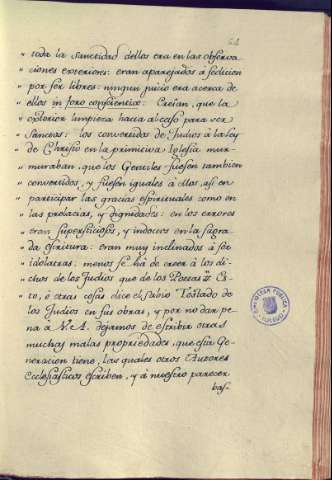 64
" toda la sanctidad dellos era en las observa
" ciones exteriores: eran aparejados á sedicion
" por ser libres: ningun juicio era acerca de
" ellos in foro conscientiæ: Creîan, que la
" exterior limpieza hacia al caso para ser
" Sanctos: los convertidos de Judios á la ley
" de Christo en la primitiva Iglesia mur-
" muraban, que los Gentiles fuesen tambien
" convertidos, y fuesen iguales á ellos, asi en
" participar las gracias espirituales como en
" las prelacias, y dignidades: en los errores
" eran supersticiosos, y indoctos en la sagra
" da escritura: eran muy inclinados á ser
" idolatras: menos se há de creer á los di-
" chos de los Judios que de los Poetas:
to, ó otras cosas dice el sabio Tostado de
los Judios en sus obras, y por no dar pe
na á V.A. dejamos de escribir otras
muchas malas propriedades, que esta Ge-
neracion tiene, las quales otros Autores
Ecclesiasticos escriben, y á nuestro parecer
bas-
BIBLIOTECA PUBLICA
TOLEDO